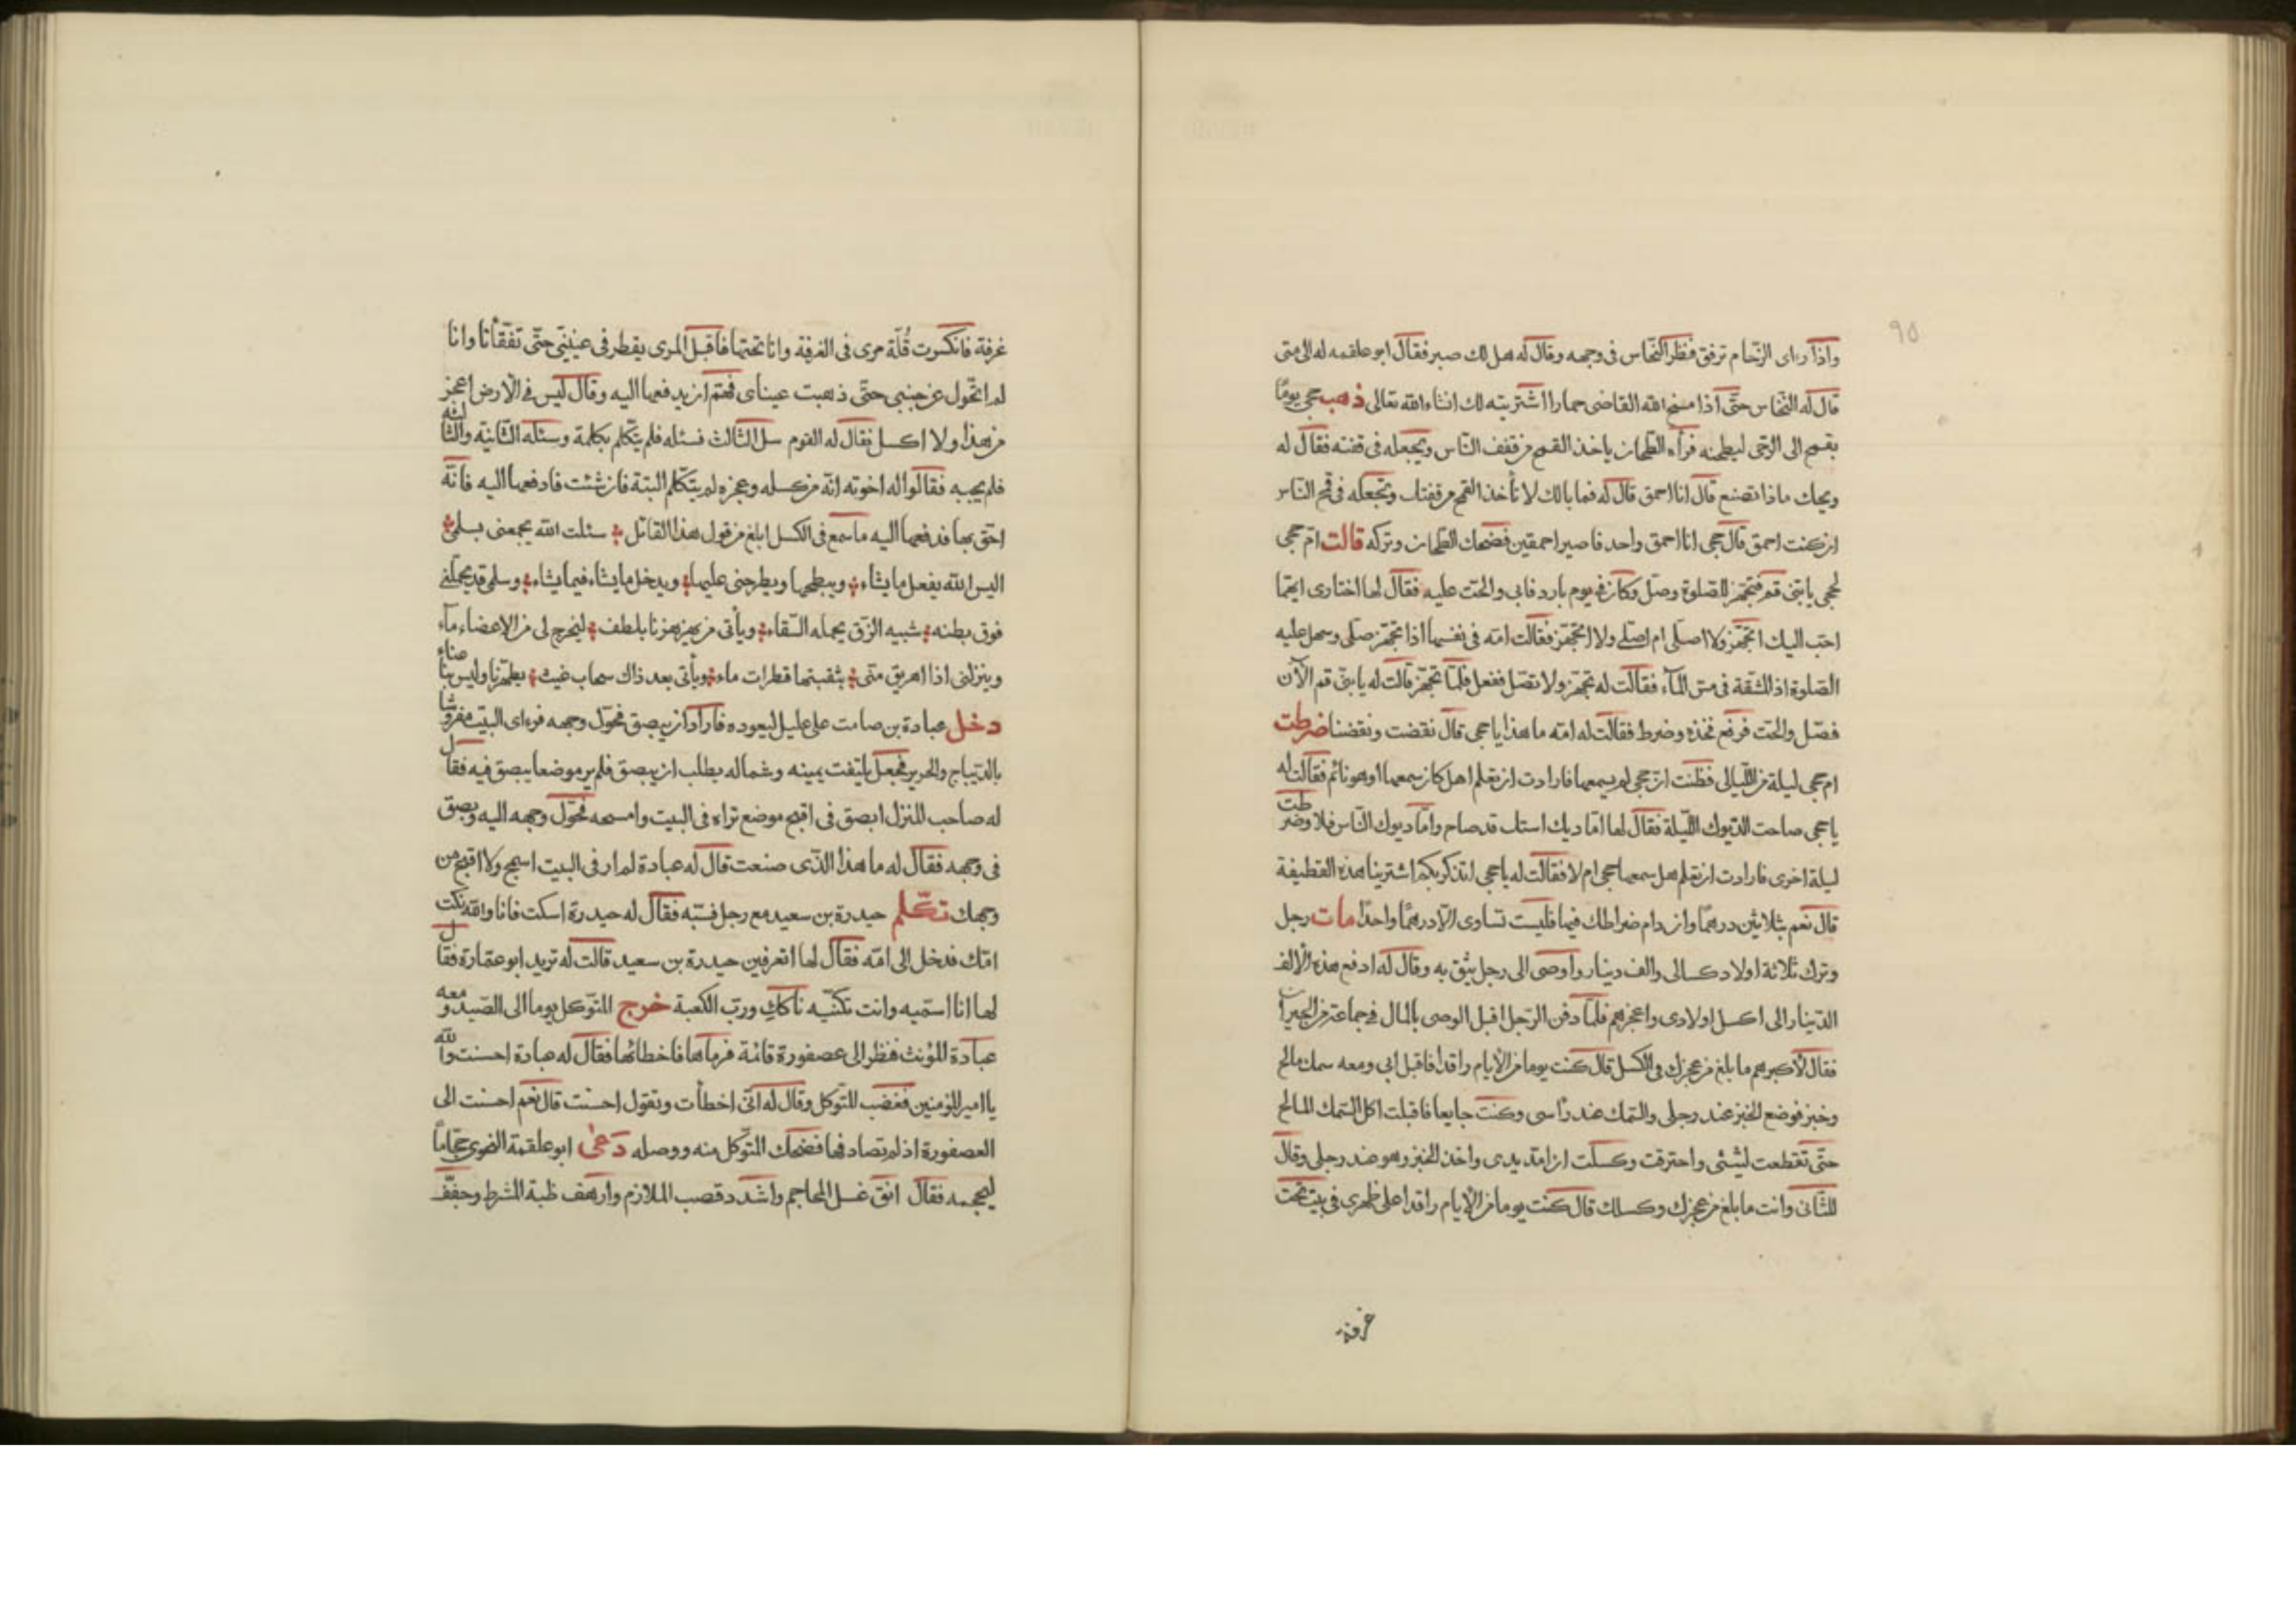 ٩٥
واذا رءاى الزحام ترفق فنظر النخاس فى وجهه وقال له هل لك صبر فقال ابو علقمه له الى متى
قال له النخاس حتى اذا مسخ الله القاضى حمارا اشتريته لك انشاء الله تعالى ذهب جحى يومًا
بقمح الى الرحى ليطحنه فرأه الطحان ياخذ القمح من قفف الناس ويجعله فى قفته فقال له
ويحك ماذا تصنع قال انا احمق قال له فما بالك لا تأخذ القمح من قفتك وتجعله فى قمح الناس
ان كنت احمق قال جحى انا احمق واحد فاصير احمقين فضحك الطحان وتركه قالت ام جحى
لجحى يا بنى قم فتجهز للصلوة وصل وكان فى يوم بارد فابى والحت عليه فقال لها اختارى ايهما
احب اليك اتجهز ولا اصلى ام اصلى ولا اتجهز فقالت امه فى نفسها اذا تجهز صلى وسهل عليه
الصلوة اذ المشقة فى مس الماء فقالت له تجهز ولا تصل ففعل فلما تجهز قالت له يا بنى قم الآن
فصل والحت فرفع فخذه وضرط فقالت له امه ما هذا يا جحى قال نقضت ونقضنا ضرطت
ام جحى ليلة من الليالى فظنت ان جحى لم يسمعها فارادت ان تعلم اهل كان سمعها او هو نائم فقالت له
يا جحى صاحت الديوك الليلة فقال لها اما ديك استك قد صاح واما ديوك الناس فلا وضرطت
ليلة اخرى فارادت ان تعلم هل سمعها جحى ام لا فقالت له يا جحى اتذكر بكم اشترينا هذه القطيفة
قال نعم بثلاثين درهمًا وان دام ضراطك فيها فليست تساوى الا درهمًا واحدًا مات رجل
وترك ثلاثة اولاد كسالى والف دينار واوصى الى رجل يثق به وقال له ادفع هذه الالف
الدينار الى اكسل اولادى واعجزهم فلما دفن الرجل اقبل الوصى بالمال فى جماعة من الجيران
فقال لأكبرهم ما بلغ من عجزك فى الكسل قال كنت يوما من الايام راقدا فاقبل ابى ومعه سمك مالح
وخبز فوضع الخبز عند رجلى والسمك عند رأسى وكنت جايعا فاقبلت اكل السمك المالح
حتى تقطعت لثتى واحترقت وكسلت ان امد يدى واخذ الخبز وهو عند رجلى وقال
للثانى وانت ما بلغ من عجزك وكسلك قال كنت يوما من الايام راقدا على ظهرى فى بيت تحت
غرفة
غرفة فانكسرت قُلّة مرى فى الغرفة وانا تحتها فاقبل المرى يقطر فى عينيى حتى تفقأنا وانا
لم اتحول عن جنبى حتى ذهبت عيناى فهتم ان يدفعها اليه وقال ليس فى الارض اعجز
من هذا ولا اكسل فقال له القوم سل الثالث فسئله فلم يتكلم بكلمة وسئله الثانية والثالثه
فلم يجبه فقالوا له اخوته انه من كسله وعجزه لم يتكلم البتة فان شئت فادفعها اليه فانه
احق بها فدفعها اليه ما سمع فى الكسل ابلغ من قول هذا القائل سئلت الله يجمعنى بسلمى
اليس الله يفعل ما يشاء ويبطحها ويطرحنى عليها ويدخل ما يشاء فيما يشاء وسلمى قد يحملنى
فوق بطنه شبيه الزق يحمله السقاء ويأتى من يهزهزنا بلطف ليخرج لى من الاعضاء ماء
وينزلنى اذا اهريق منى بثقبتها قطرات ماء ويأتى بعد ذاك سحاب غيث يطهرنا وليس بنا عناء
دخل عبادة بن صامت على عليل ليعوده فاراد ان يبصق فحول وجهه فرءاى البيت مفروشا
بالديباج والحرير فجعل يلتفت يمينه وشماله يطلب ان يبصق فلم ير موضعا يبصق فيه فقال
له صاحب المنزل ابصق فى اقبح موضع تراه فى البيت وامسحه فحول وجهه اليه وبصق
فى وجهه فقال له ما هذا الذى صنعت قال له عبادة لم ار فى البيت اسمج ولا اقبح من
وجهك تكلم حيدرة بن سعيد مع رجل فسبه فقال له حيدرة اسكت فانا والله نكت
امك فدخل الى امه فقال لها اتعرفين حيدرة بن سعيد قالت له تريد ابو عمارة فقال
لها انا اسميه وانت تكنيه ناككِ ورب الكعبة خرج المتوكل يوما الى الصيد ومعه
عبادة المؤنث فنظر الى عصفورة قائمة فرماها فاخطائها فقال له عبادة احسنت والله
يا امير المؤمنين فغضب المتوكل وقال له انى اخطأت وتقول احسنت قال نعم احسنت الى
العصفورة اذ لم تصادفها فضحك المتوكل منه ووصله دَعَى ابو علقمة النحوى حجّامًا
ليحجمه فقال انق غسل المحاجم واشدد قصب الملازم وارهف ظبة المشرط وخفف